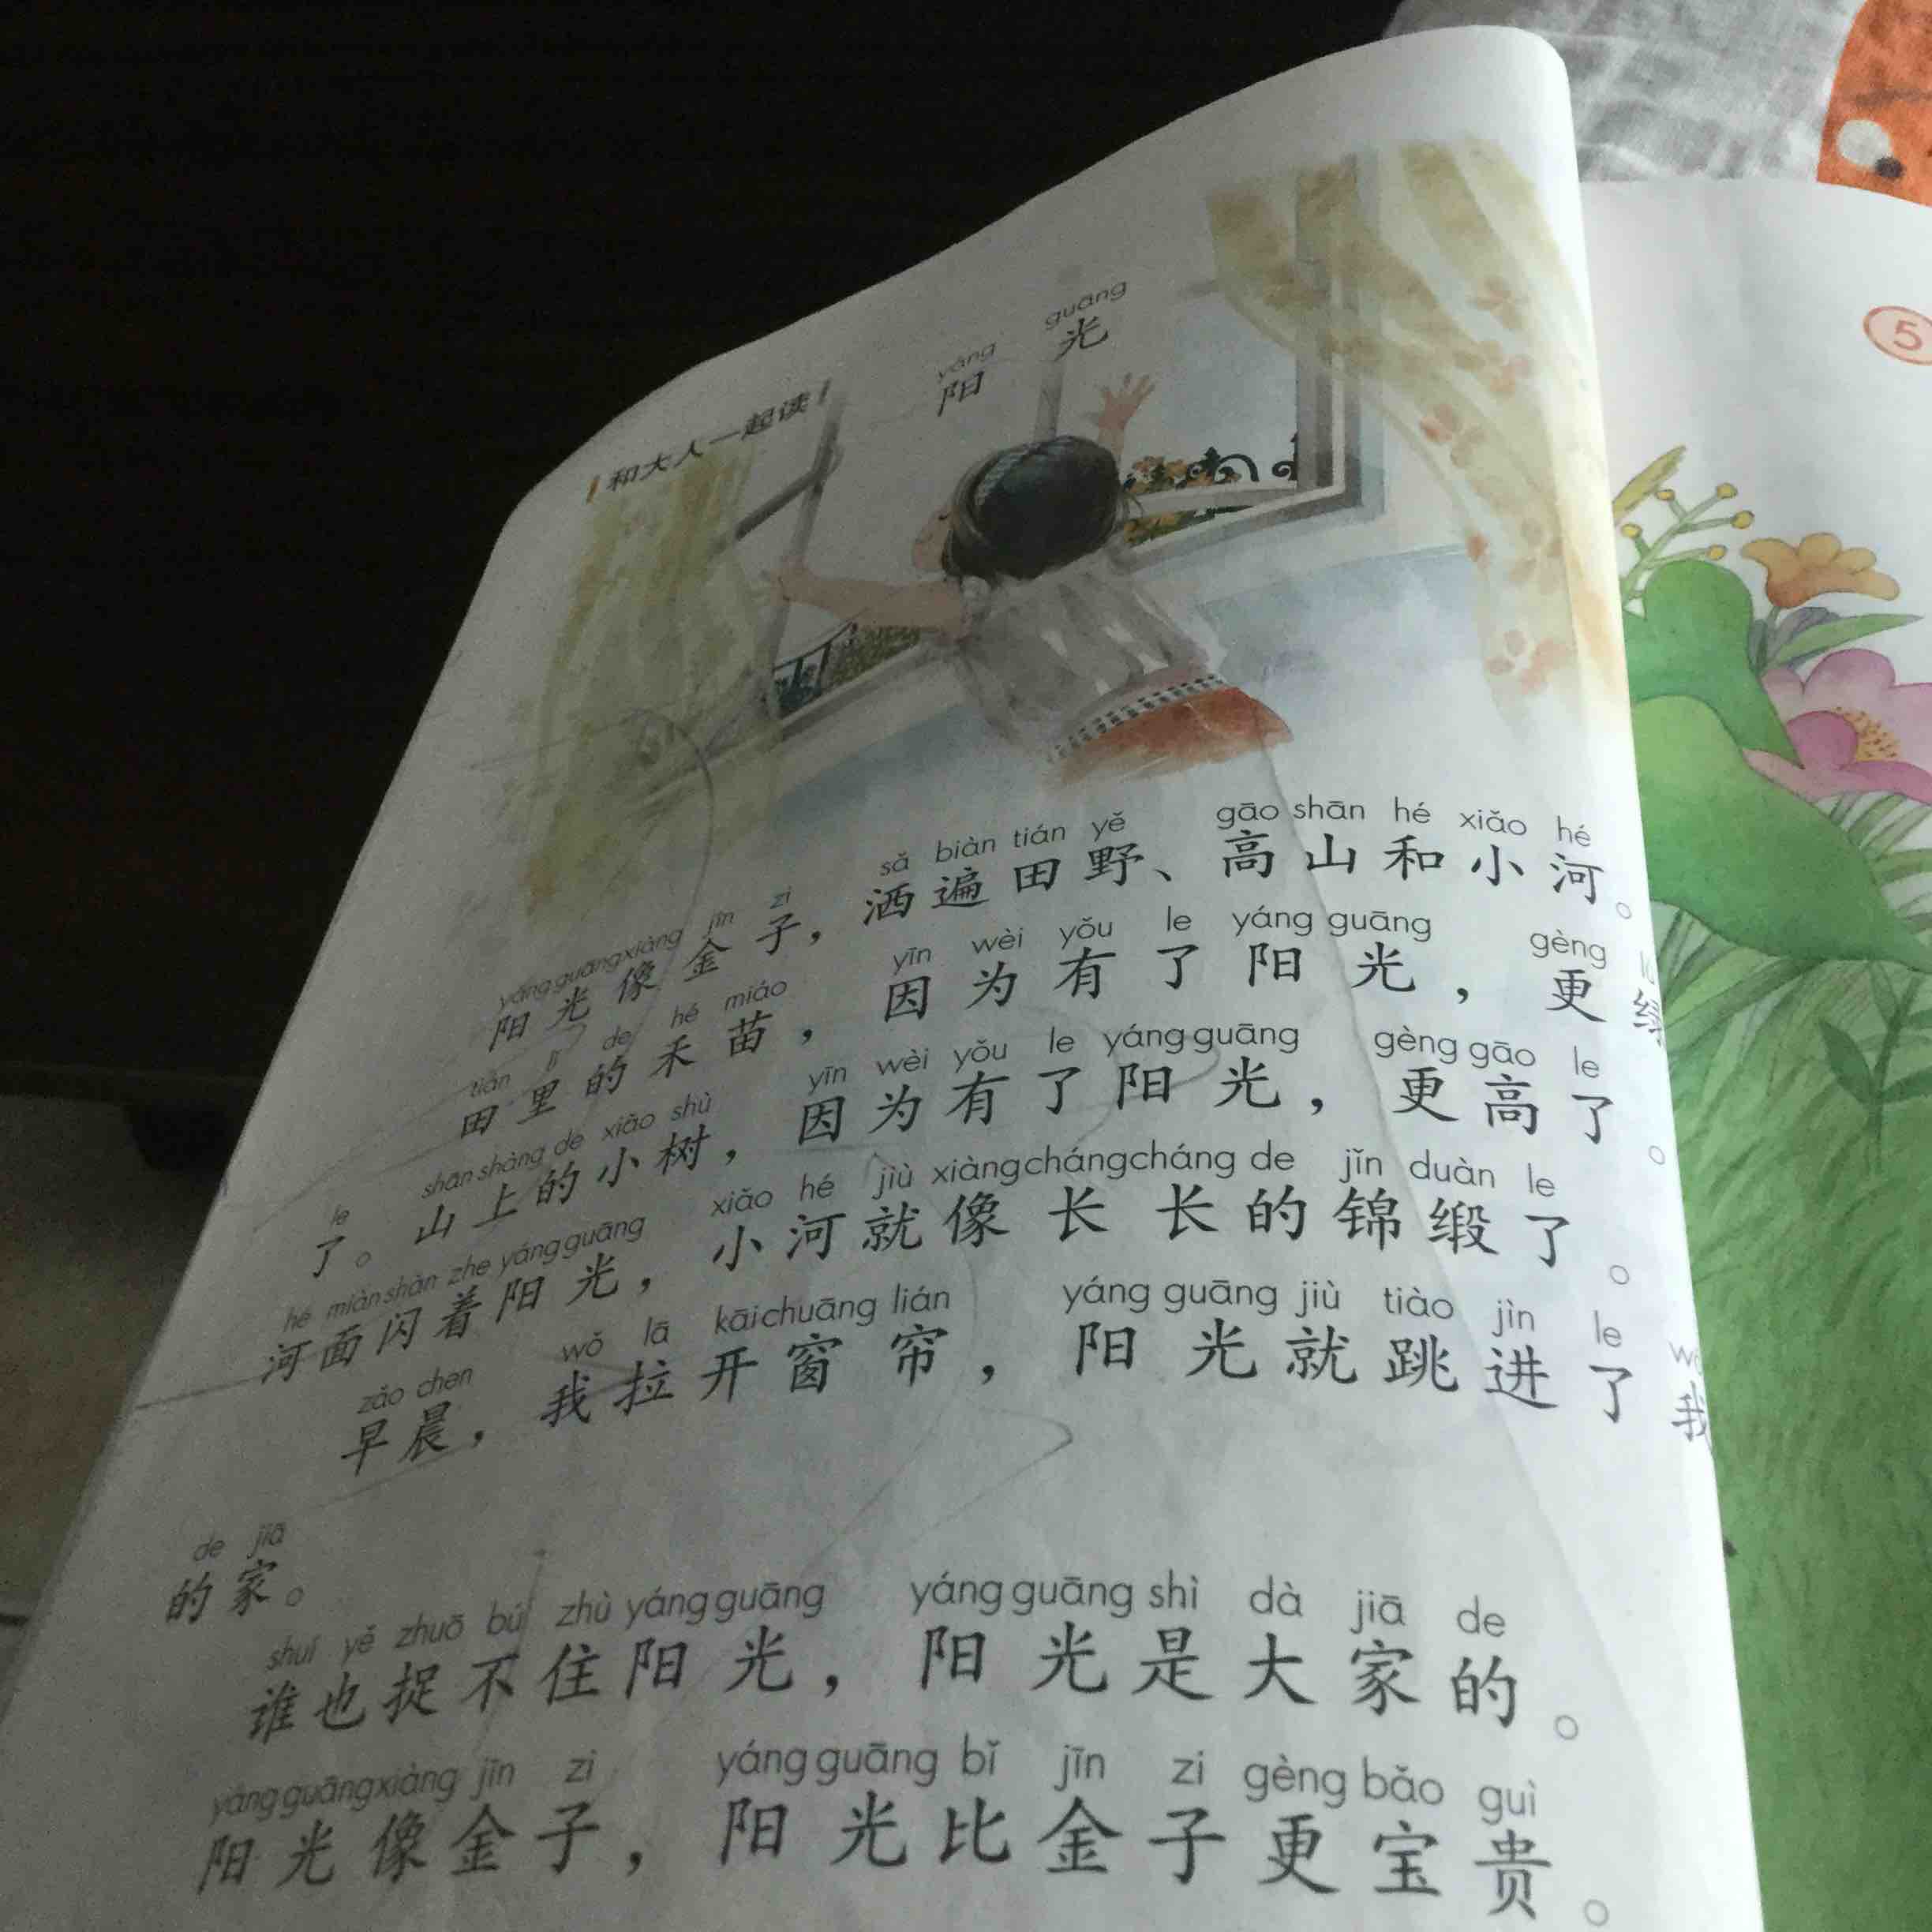 和大人一起读
yáng guāng
阳光
yáng guāng xiàng jīn zi sǎ biàn tián yě gāo shān hé xiǎo hé
阳光像金子，洒遍田野、高山和小河。
tián lǐ de hé miáo yīn wèi yǒu le yáng guāng gèng
田里的禾苗，因为有了阳光，更绿
le shān shàng de xiǎo shù yīn wèi yǒu le yáng guāng gèng gāo le
了。山上的小树，因为有了阳光，更高了。
hé miàn shǎn zhe yáng guāng xiǎo hé jiù xiàng cháng cháng de jǐn duàn le
河面闪着阳光，小河就像长长的锦缎了。
zǎo chen wǒ lā kāi chuāng lián yáng guāng jiù tiào jìn le
早晨，我拉开窗帘，阳光就跳进了我
de jiā
的家。
shuí yě zhuō bú zhù yáng guāng yáng guāng shì dà jiā de
谁也捉不住阳光，阳光是大家的。
yáng guāng xiàng jīn zi yáng guāng bǐ jīn zi gèng bǎo guì
阳光像金子，阳光比金子更宝贵。
5